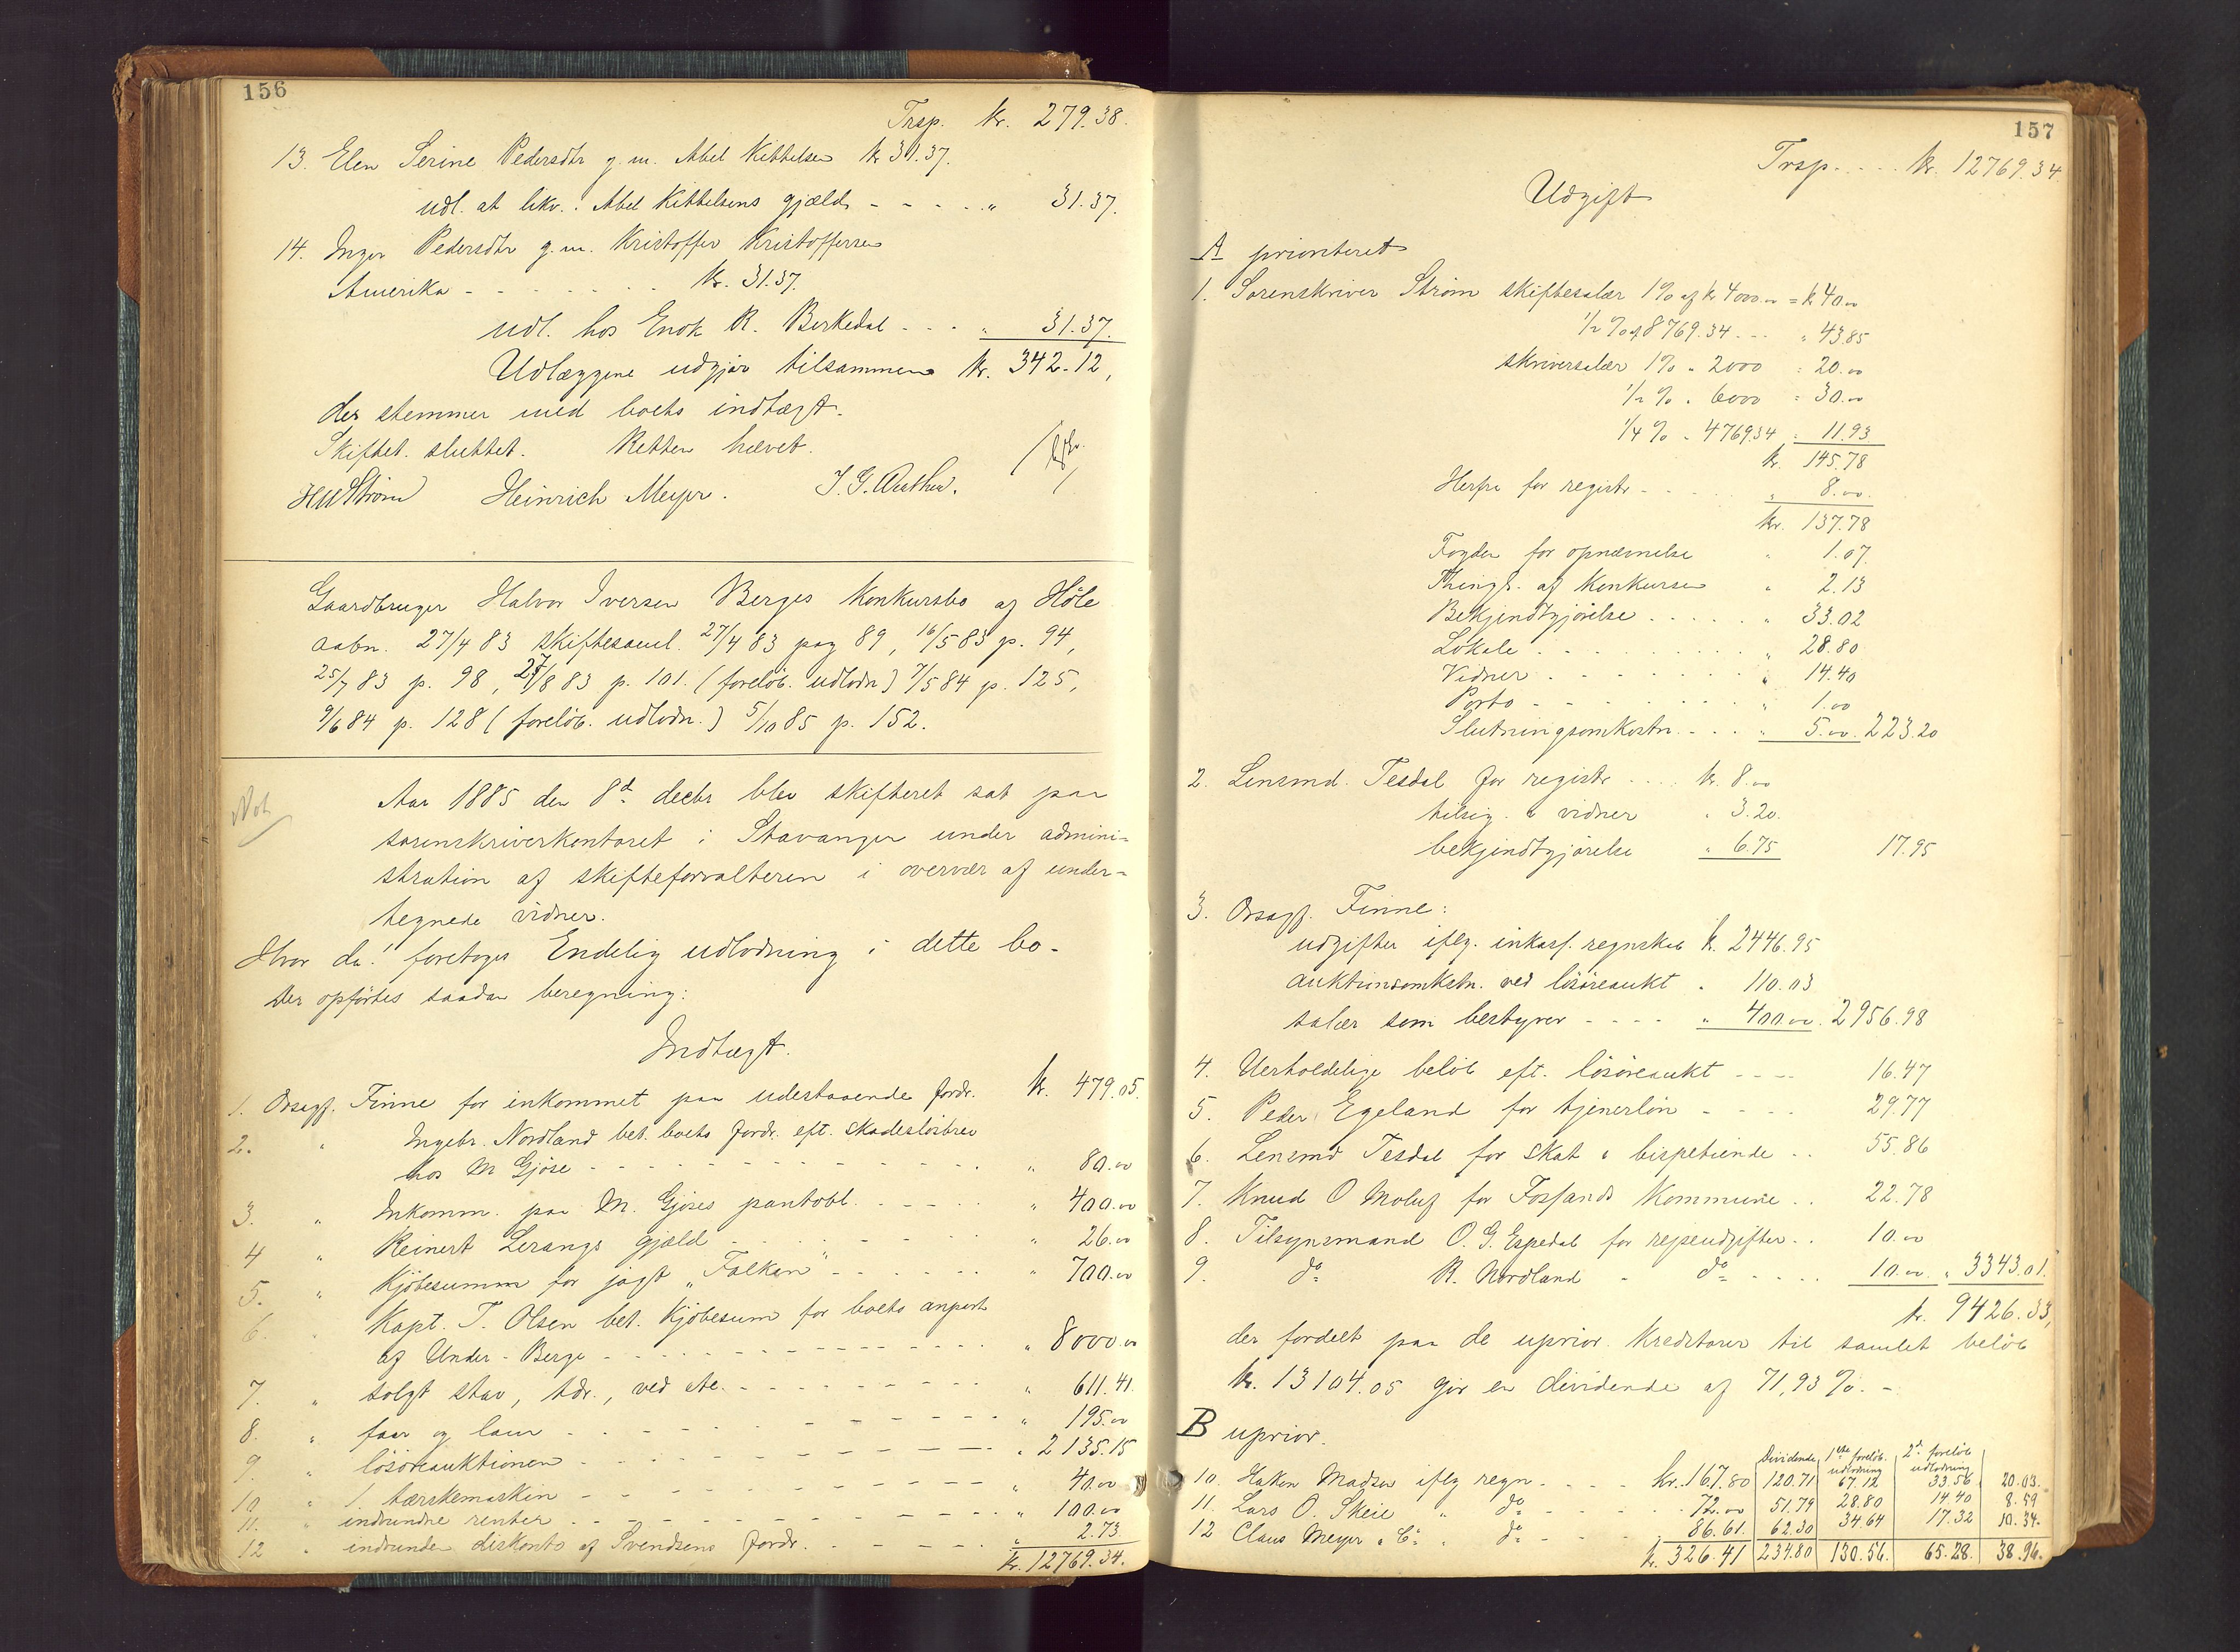 156
Trsp. kr. 279.38.
13. Elen Serine Pedersdtr g. m. Abel Kittelsen kr 31.37.
udl. at likv. i Abel Kittelsens gjæld - - - - - „ 31.37.
14. Inger Pedersdtr g. m. Kristoffer Kristoffersen
Amerika - - - - - - - kr. 31.37.
udl. hos Enok R. Berkedal - - - „ 31.37.
Udlæggene udgjør tilsammen kr. 342.12,
der stemmer med boets indtægt.
Skiftet sluttet. Retten hævet.
HWStrøm Heinrich Meyer. J. G. Austbø.
Gaardbruger Halvor Iversen Berges konkursbo af Høle
aabn. 27/4 83 skiftesaml. 27/4 83 pag 89, 16/5 83 p. 94,
25/7 83 p. 98, 27/8 83 p. 101. (foreløb. udlodn) 7/5 84 p. 125,
9/6 84 p. 128 (foreløb. udlodn.) 5/10 85 p. 152.
Not
Aar 1885 den 8d decbr blev skifteret sat paa
sorenskriverkontoret i Stavanger under admini-
stration af skifteforvalteren i overvær af under-
tegnede vidner.
Hvor da! foretoges Endelig udlodning i dette bo.
Der opførtes saadan beregning:
Indtægt.
1. Orsagf. Finne for inkommet paa udestaaende fordr. kr. 479.05.
2. „ Ingebr. Nordland bet. boets fordr. eft. skadesløsbrev
hos M Gjøse - - - - - - - - „ 80.00
3. „ Inkomm. paa M. Gjøses pantobl. - - - - - „ 400.00
4 „ Reinert Lerangs gjæld - - - - - - „ 26.00
5. „ Kjøbesumm for jagt „Falken“ - - - - - - „ 700.00
6. „ Kapt. T. Olsen bet. kjøbesum for boets anpart
af Under-Berge - - - - - - - - „ 8000.00
7. „ solgt stav, tdr., ved etc. - - - - - - - „ 611.41.
8. „ faar og lam - - - - - - - - „ 195.00
9. „ løsøreauktionen - - - - - - - - „ 2135.15
10 „ 1 tærskemaskin - - - - - - - - „ 40.00
11. „ indvundne renter - - - - - - - - „ 100.00
12 „ indvunden diskonto af Svendsens fordr. - - - - - „ 2.73
kr. 12769.34.
157
Trsp. . . . . kr. 12769.34.
Udgift
A prioriteret
1. Sorenskriver Strøm skiftesalær 1% af kr 4000.00 = kr 40.00
1/2 % af 8769.34 - - - „ 43.85
skriversalær 1% „ 2000 = 20.00
1/2 % „ 6000 = 30.00
1/4 % „ 4769.34 = 11.93
kr. 145.78
Herfra for registr - - - - - „ 8.00.
kr. 137.78
Fogden for opnævnelse „ 1.07.
Thingl. af konkursen „ 2.13
Bekjendtgjørelse . . . . . „ 33.02
Lokale . . . . . . . . „ 28.80
Vidner . . . . . . . „ 14.40
Porto - - - - - - - „ 1.00
Slutningsomkostn. - - - „ 5.00. 223.20
2. Lensmd. Tesdal for registr . . . . kr. 8.00
tilsig. a vidner „ 3.20.
bekjendtgjørelse „ 6.75 17.95
3. Orsagf. Finne:
udgifter iflg. inkass. regnskab kr. 2446.95
auktionsomkstn. ved løsøreaukt „ 110.03
salær som bestyrer - - - - „ 400.00. 2956.98
4. Uerholdelige beløb eft. løsøreaukt - - - - 16.47
5. Peder Egeland for tjenerløn - - - - 29.77
6. Lensmd Tesdal for skat & bispetiende . . 55.86
7. Knud O Moluf for Fossands kommune . . 22.78
8. Tilsynsmand O. G. Espedal for rejseudgifter . . 10.00
9. do R. Nordland - do . . . . . 10.00. „ 3343.01.
kr. 9426.33,
der fordelt paa de uprior. kreditorer til samlet beløb
kr. 13104.05 gir en dividende af 71,93 %. -
B uprior.
Dividende 1ste foreløb. udlodning 2d foreløb udlodning
10. Hakon Madsen iflg regn. . . . . kr. 167.80 120.71 67.12 33.56 20.03.
11. Lars O. Skeie „ do - - - - - 72.00 51.79 28.80 14.40 8.59
12 Claus Meyer & Co. „ do - - - 86.61. 62.30 34.64 17.32 10.34.
kr. 326.41 234.80 130.56. 65.28. 38.96.